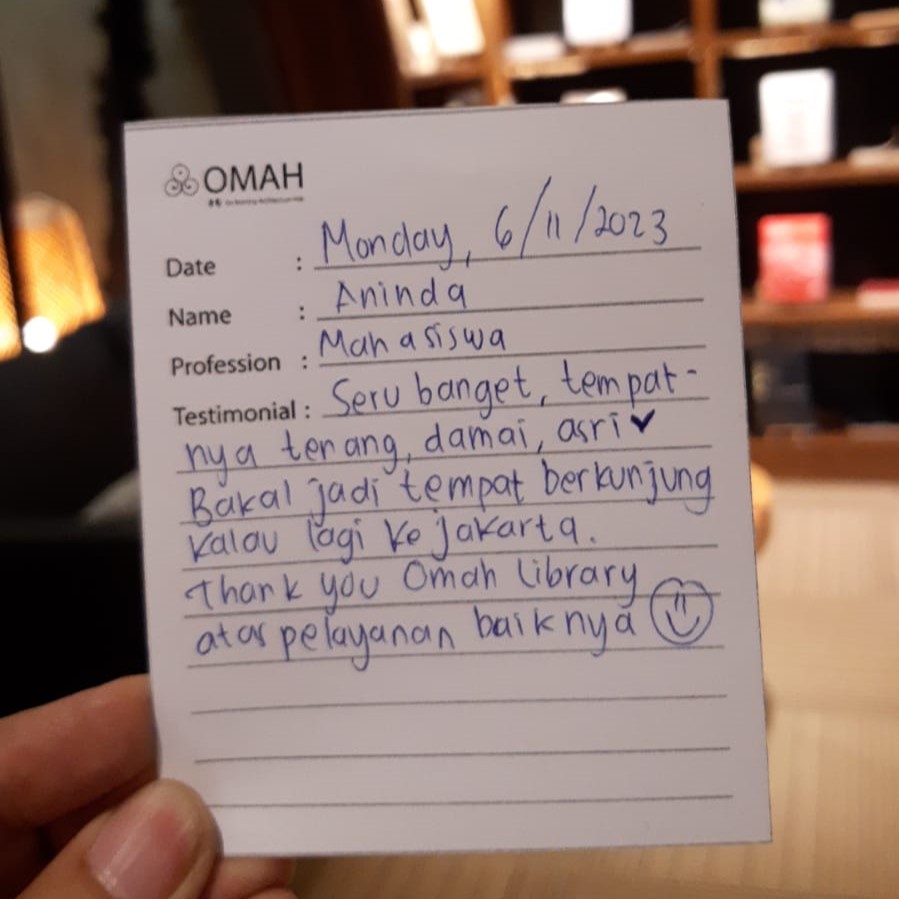 OMAH
Date : Monday, 6/11/2023
Name : Aninda
Profession : Mahasiswa
Testimonial : Seru banget, tempat-
nya tenang, damai, asri
Bakal jadi tempat berkunjung
kalau lagi ke jakarta.
Thank you Omah Library
atas pelayanan baiknya